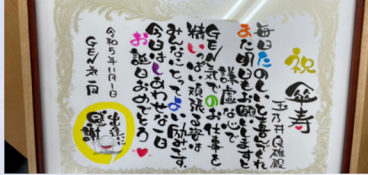 祝 傘寿
玉乃井Q雄殿
毎日たのしいと喜びくれ
また明日もお願いしますと
謙虚な心で
GEN気でのお仕事を
精いっぱい頑張る姿は
みんなにとってよい励みです
今日はしあわせな一日
お誕日おめでとう
令和5年11月1日
GEN気一同
出逢いに
感謝